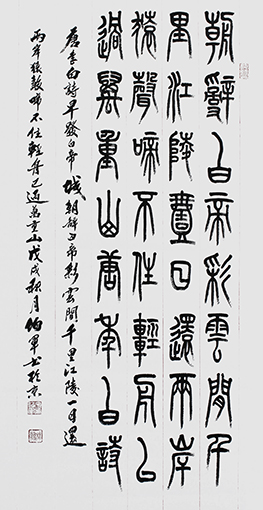 朝辭白帝彩雲間千
里江陵壹日還兩岸
猿聲啼不住輕舟已
過萬重山唐李白詩
唐李白詩早發白帝城朝辭白帝彩雲間千里江陵一日還
兩岸猿聲啼不住輕舟已過萬重山戊戌秋月伯軍书於京